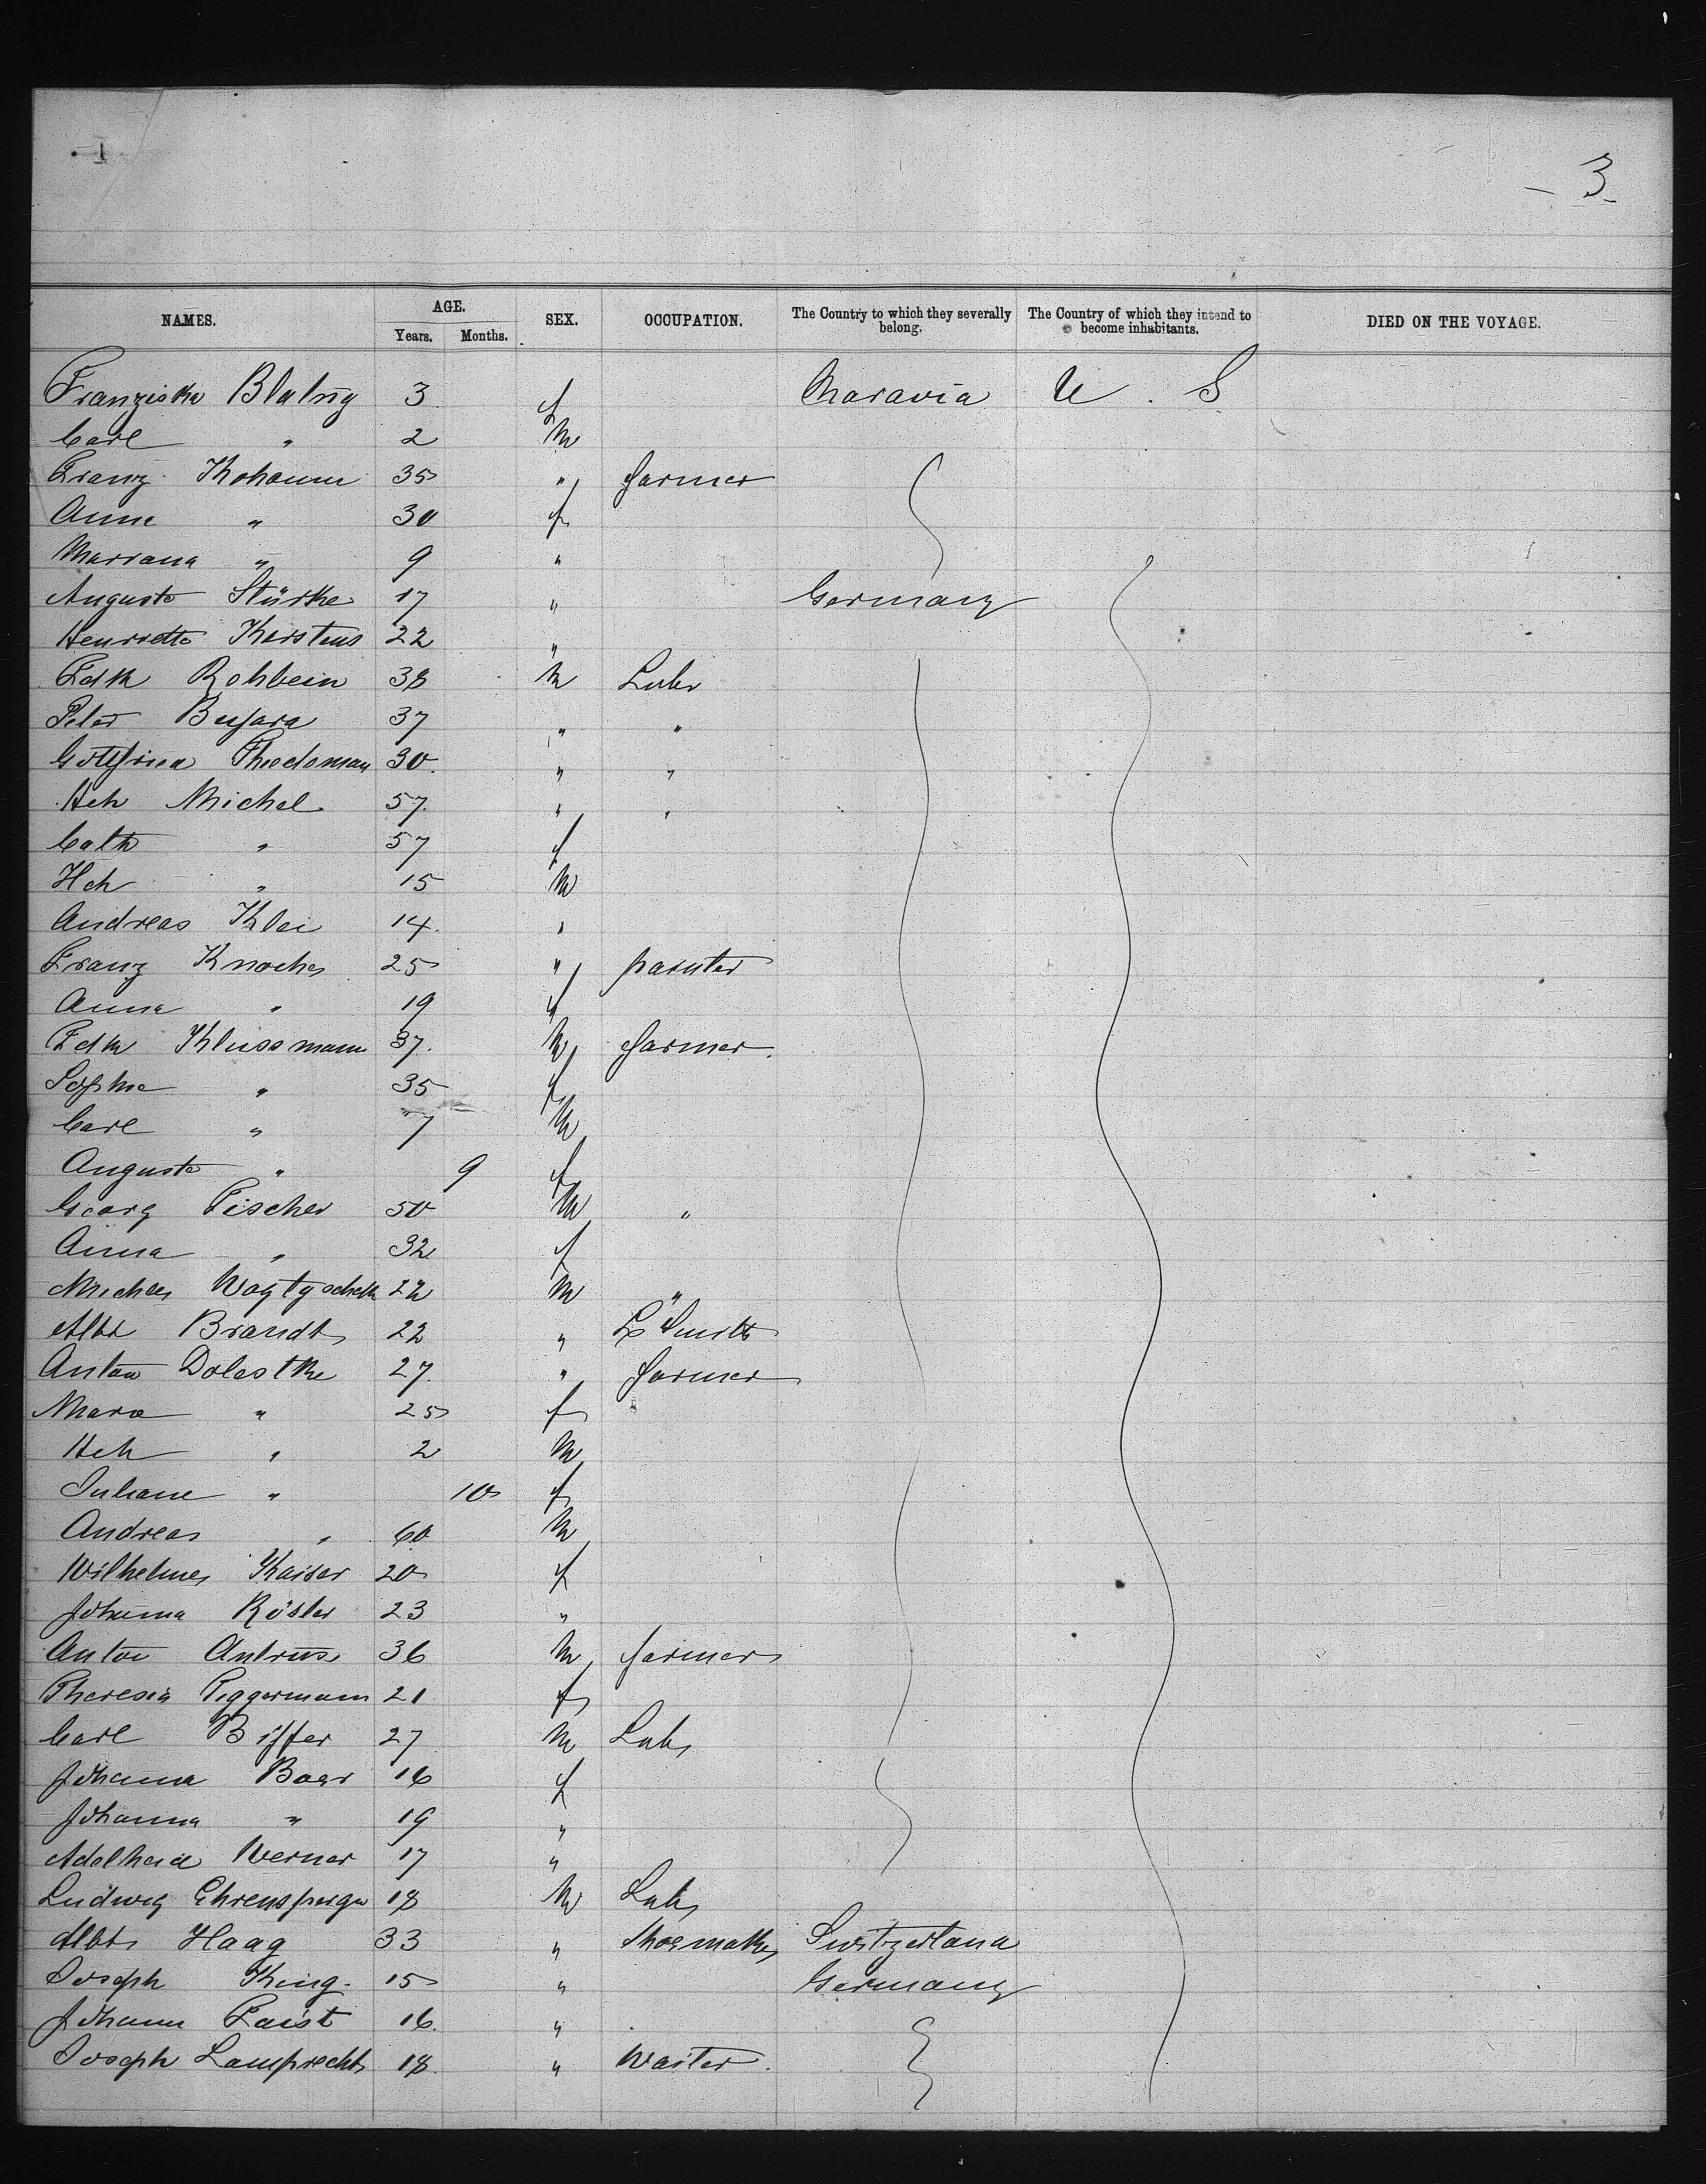 - 3 -
NAMES. AGE. SEX. OCCUPATION. The Country to which they severally belong. The Country of which they intend to become inhabitants. DIED ON THE VOYAGE.
Years. Months.
Franziska 3 f Maravia U. S
Carl " 2 m
Franz Kohaum 35 " farmer
Anna " 30 f
Marrana " 9 "
Auguste Stürke 17 " Germany
Henriette Karstens 22 "
Fdk Rohbein 38 m Labr
Peter 37 " "
Gottfried Theodoman 30 " "
Hch Michel 57 " "
Cath " 57 f
Hch " 15 m
Andreas Klei 14 "
Franz Knoche 25 " painter
Anna " 19 f
Fdk Klussmann 37 m farmer
Sophie " 35 f
Carl " 7 m
Auguste " 9 f
Georg Fischer 50 m "
Anna " 32 f
Michael 22 m "
Albt Brandt 22 " L Smith
Anton Dolestke 27 " farmer
Mara " 25 f
Hch " 2 m
Juliane " 10 f
Andreas " 60 m
Wilhelmes Kaiser 20 f
Johanna Rösler 23 "
Anton Antrus 36 m farmer
Theresia Piggermann 21 f
Carl Biffer 27 m Lab
Johanna Baer 16 f
Johanna " 19 "
Adelheid Werner 17 "
Ludwig Ehrensperger 18 m Lab
Albt Haag 33 " Shoemaker Switzerland
Joseph King 15 " Germany
Johann Faist 16 "
Joseph Lamprecht 18 " Waiter